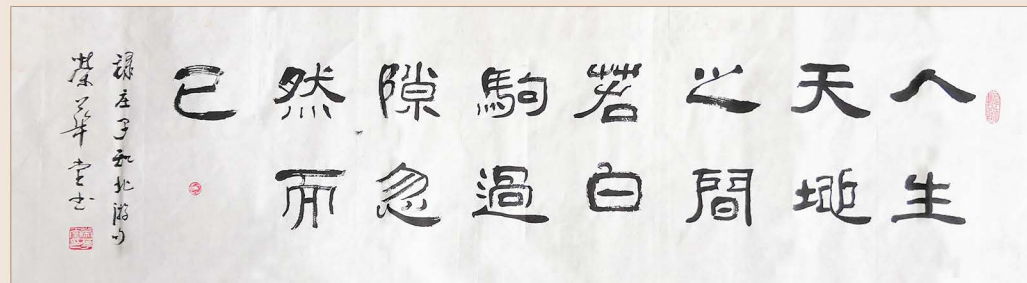 人生
天地
之間
若白
駒過
隙忽
然而
已
錄庄子知北游句
榮華堂书